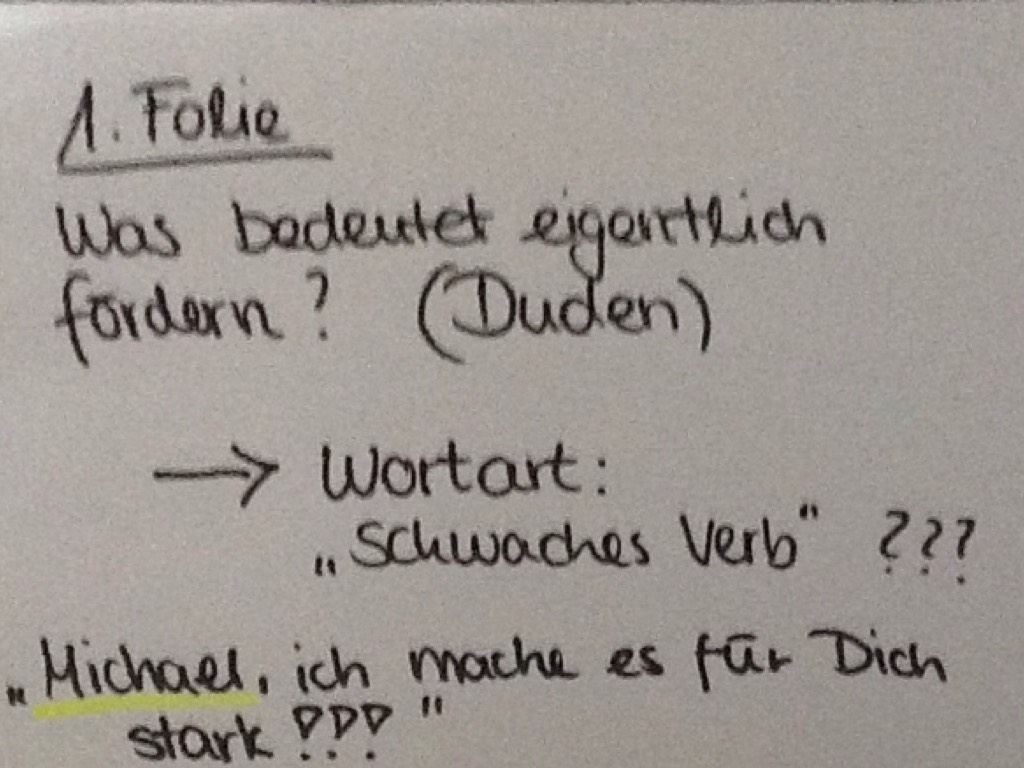 1. Folie
Was bedeutet eigentlich
fördern? (Duden)
→ Wortart:
„Schwaches Verb" ???
„Michael, ich mache es für Dich
stark !!!"